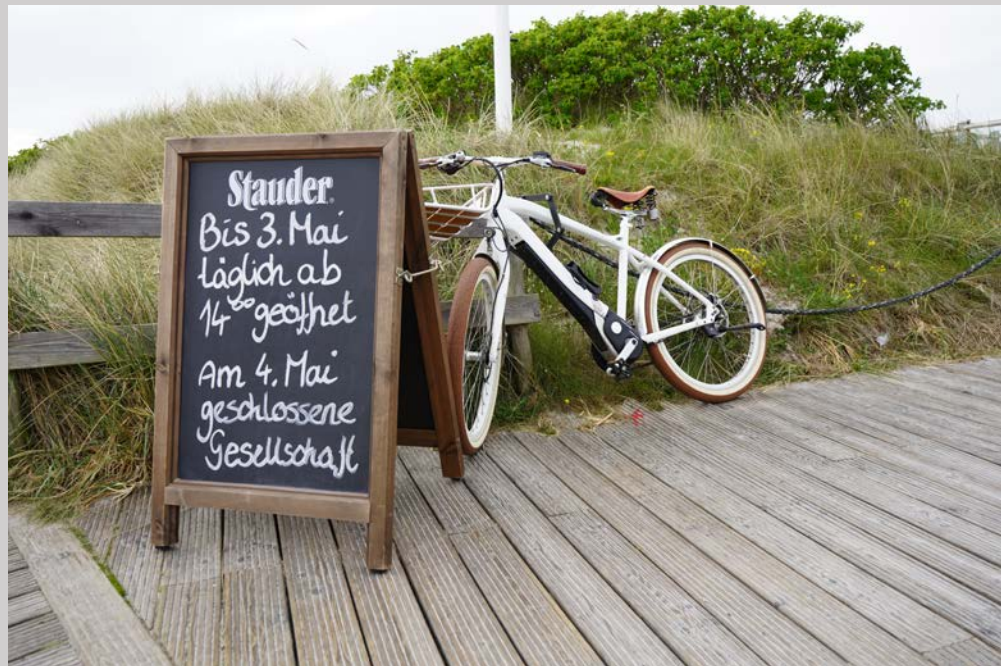 Stauder
Bis 3. Mai
täglich ab
14⁰⁰ geöffnet
Am 4. Mai
geschlossene
Gesellschaft